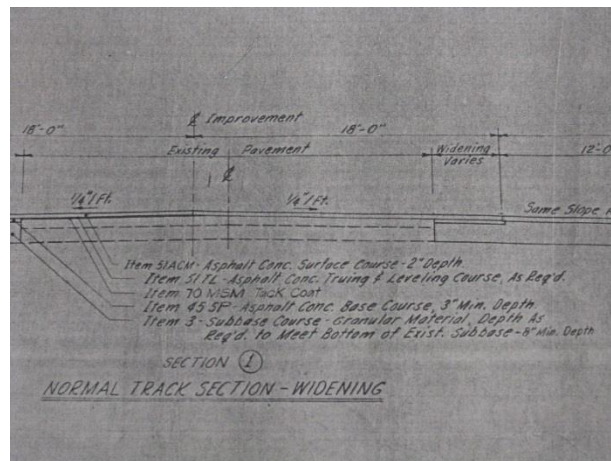 ℄ Improvement
18'-0"
18'-0"
Existing Pavement
Widening Varies
12'-0
℄
1/4"/Ft.
1/4"/Ft.
Same Slope
Item 51ACM - Asphalt Conc. Surface Course - 2" Depth
Item 51TL - Asphalt Conc. Truing & Leveling Course, As Req'd.
Item 70 MSM Tack Coat
Item 45 SP - Asphalt Conc. Base Course, 3" Min. Depth
Item 3 - Subbase Course - Granular Material, Depth As
Req'd. to Meet Bottom of Exist. Subbase - 8" Min. Depth
SECTION 1
NORMAL TRACK SECTION - WIDENING